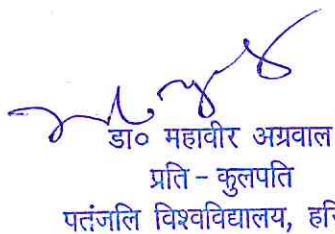 डा० महावीर अग्रवाल
प्रति - कुलपति
पतंजलि विश्वविद्यालय,